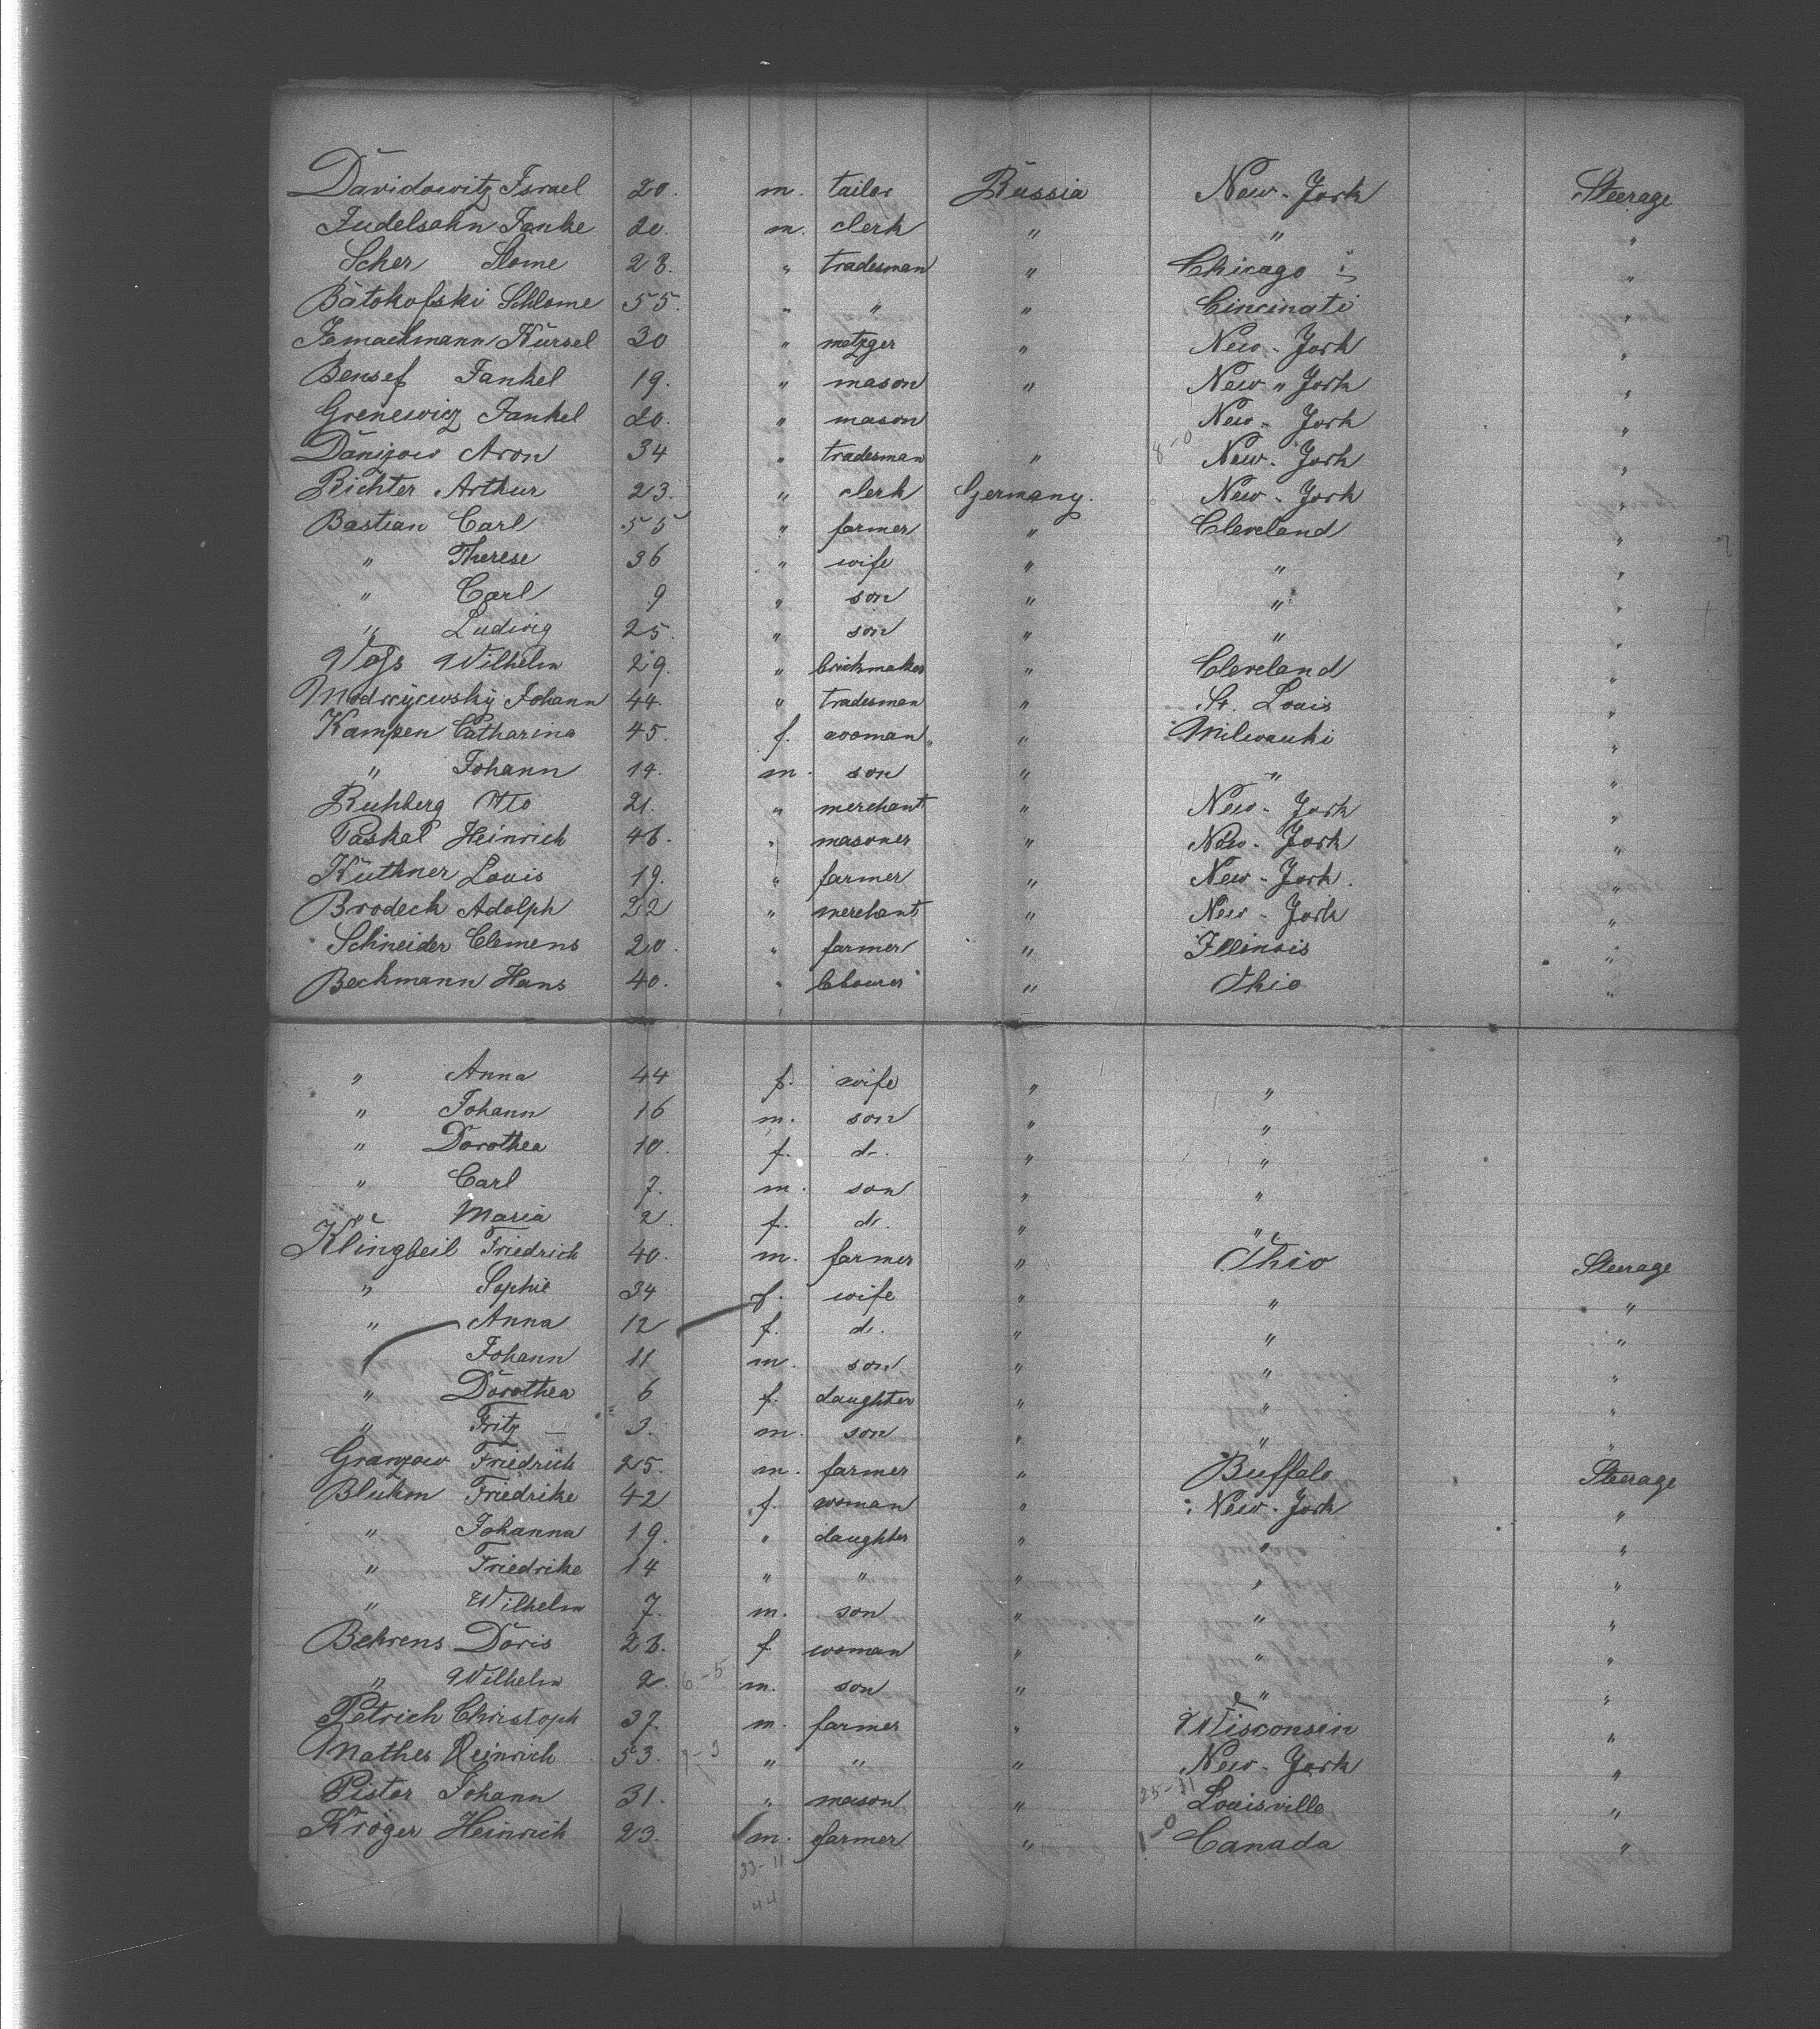 Davidowitz Israel 20. m. tailor Russia New-York Steerage
Judelsohn Janke 20. m. clerk " " "
Scher Slome 28. " tradesman " Chicago "
Batokofski Schlome 55. " " " Cincinati "
Kürsel 30 " metzger " New-York "
Bensef Jankel 19. " mason " New-York "
Grenewicz Jankel 20. " mason New-York "
Danizow Aron 34 " tradesman " 8-0 New-York "
Richter Arthur 23. " clerk Germany. New-York "
Bastian Carl 55 " farmer " Cleveland "
" Therese 36 " wife " " "
" Carl 9 " son " " "
" Ludwig 25. " son " " "
Voss Wilhelm 29. " brickmaker " Cleveland "
Johann 44. " tradesman " St. Louis "
Kampen Catharina 45. f. woman " Milwauki "
" Johann 14. m. son " " "
Ruhberg Otto 21. " merchant " New-York "
Paskal Heinrich 46. " masoner " New-York "
Küthner Louis 19. " farmer " New-York. "
Brodech Adolph 22 " merchant " New-York "
Schneider Clemens 20. " farmer " Illinois "
Beckmann Hans 40. " labourer " Ohio "
" Anna 44 f. wife " "
" Johann 16 m. son " "
" Dorothea 10. f. d. " "
" Carl 7. m. son " "
" Maria 2. f. d. " "
Klingbeil Friedrich 40. m. farmer " Ohio Steerage
" Sophie 34 f. wife " " "
" Anna 12 f. d. " " "
" Johann 11 m. son " " "
" Dorothea 6 f. daughter " " "
" Fritz 3. m. son " " "
Granzow Friedrich 25. m. farmer " Buffalo Steerage
Blühm Friedrike 42 f. woman " New-York "
" Johanna 19. " daughter " " "
" Friedrike 14 " " " " "
" Wilhelm 7. m. son " " "
Behrens Doris 28. f. woman " " "
" Wilhelm 2. 6-5 m. son " " "
Petrich Christoph 37. m. farmer " Wisconsin "
Mathes Heinrich 53. " " " New-York "
Pistor Johann 31. " mason " 25-11 Louisville "
Kröger Heinrich 23. m. farmer " 1-0 Canada "
33-11
44